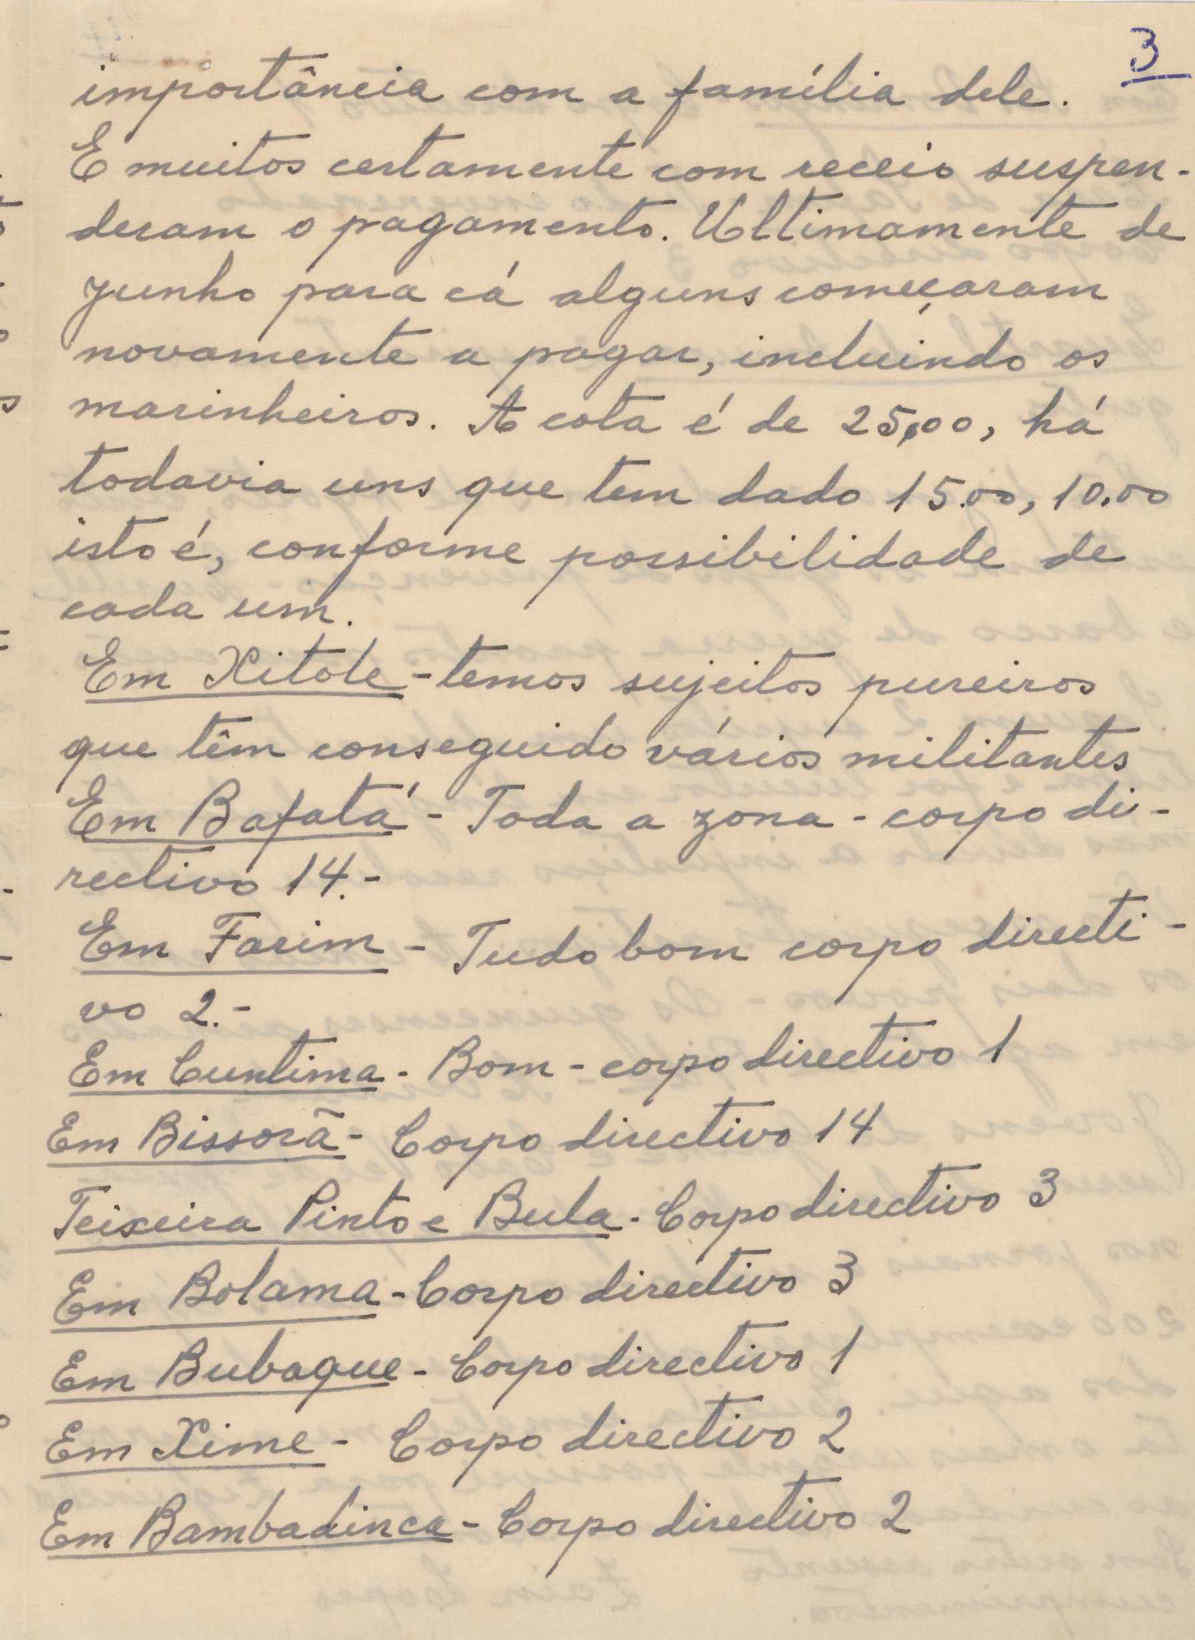 3
importância com a família dele.
E muitos certamente com receio suspen-
deram o pagamento. Ultimamente de
junho para cá alguns começaram
novamente a pagar, incluíndo os
marinheiros. A cota é de 25,00, há
todavia uns que tem dado 15.00, 10.00
isto é, conforme possibilidade de
cada um.
Em Xitole - temos sujeitos pureiros
que têm conseguido vários militantes
Em Bafatá - Toda a zona - corpo di-
rectivo 14.-
Em Farim - Tudo bom corpo directi-
vo 2.-
Em Cuntima - Bom - corpo directivo 1
Em Bissorã - Corpo directivo 14
Teixeira Pinto e Bula - Corpo directivo 3
Em Bolama - Corpo directivo 3
Em Bubaque - Corpo directivo 1
Em Xime - Corpo directivo 2
Em Bambadinca - Corpo directivo 2